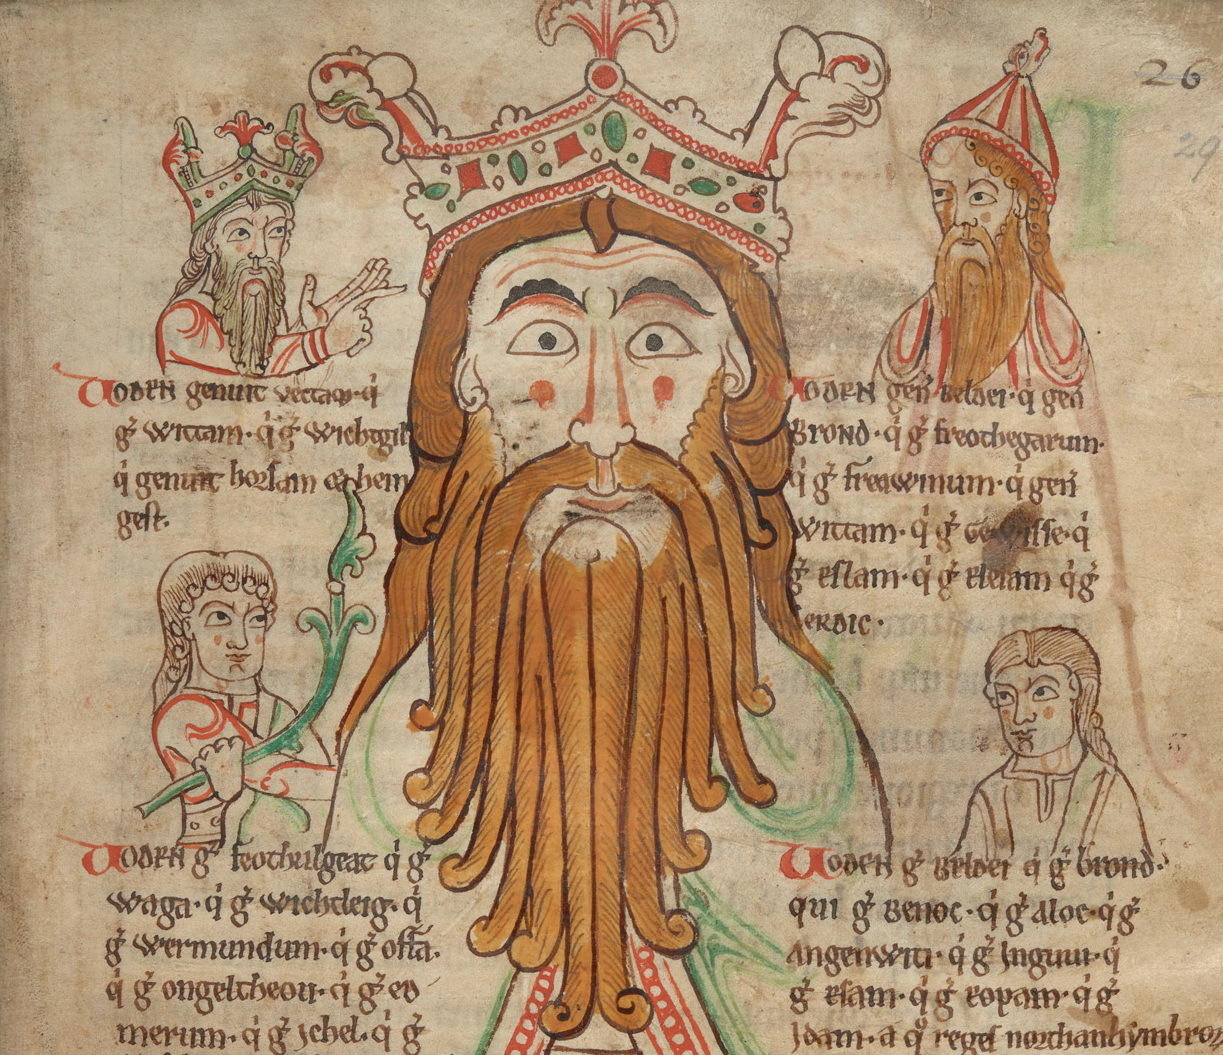 26
29
Woden genuit vectam · q̇
g̉ wittam · q̇ g̉ wichtgil
q̇ genuit horsam & hem
gest.
Woden geñ Beldei · q̇ geñ
Brond · q̇ g̉ freothegarum ·
q̇ g̉ freawinum · q̇ geñ
wittam · q̇ g̉ Gewisse · q̇
g̉ eslam · q̇ g̉ eleiam q̇ g̉
Cerdic ·
Woden g̉ feothulgeat q̇ g̉
waga · q̇ g̉ wichtleig · q̇
g̉ wermundum · q̇ g̉ offā.
q̇ g̉ ongeltheou · q̇ g̉ eo
merum · q̇ g̉ Ichel · q̇ g̉
Woden g̉ Beldei q̇ g̉ brond ·
qui g̉ Benoc · q̇ g̉ aloc · q̇ g̉
angenwiti · q̇ g̉ Inguui · q̇
g̉ esam · q̇ g̉ eopam · q̇ g̉
Idam · a q̊ reges northanhymbror